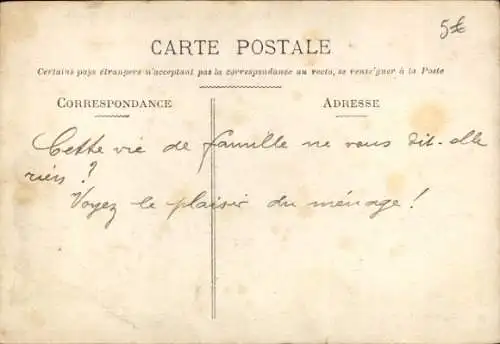 5€
CARTE POSTALE
Certains pays étrangers n'acceptant pas la correspondance au recto, se rense'gner à la Poste
CORRESPONDANCE
ADRESSE
Cette vie de famille ne vous dit-elle
rien ?
Voyez le plaisir du ménage !